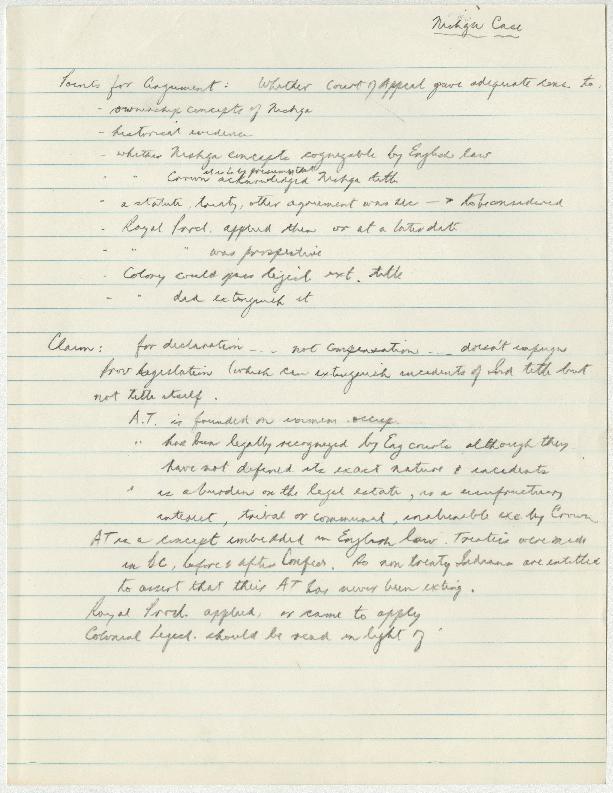 Nishga Case
Points for argument: Whether Court of Appeal gave adequate cons. to.
- ownership concepts of Nishga
- historical evidence
- whether Nishga concepts cognizable by English law
it is to be presumed that
- " Crown acknowledged Nishga title
- a statute, treaty, other agreement was nec → to be considered
- Royal Procl. applied then or at a later date
- " " was prospective
- Colony could pass legisl ext. title
- " did extinguish it
Claim: for declaration --- not compensation --- doesn't impugn
Prov legislation (which can extinguish incidents of Ind title but
not title itself.
A.T. is founded on immem. occup.
" has been legally recognized by Eng courts although they
have not defined its exact nature & incidents
" is a burden on the legal estate, is a usufructuary
interest, tribal or communal, inalienable exc by Crown
AT is a concept imbedded in English law. Treaties were made
in BC, before & after Confed. So non treaty Indians are entitled
to assert that their AT has never been exting.
Royal Procl. applied, or came to apply
Colonial Legisl. should be read in light of